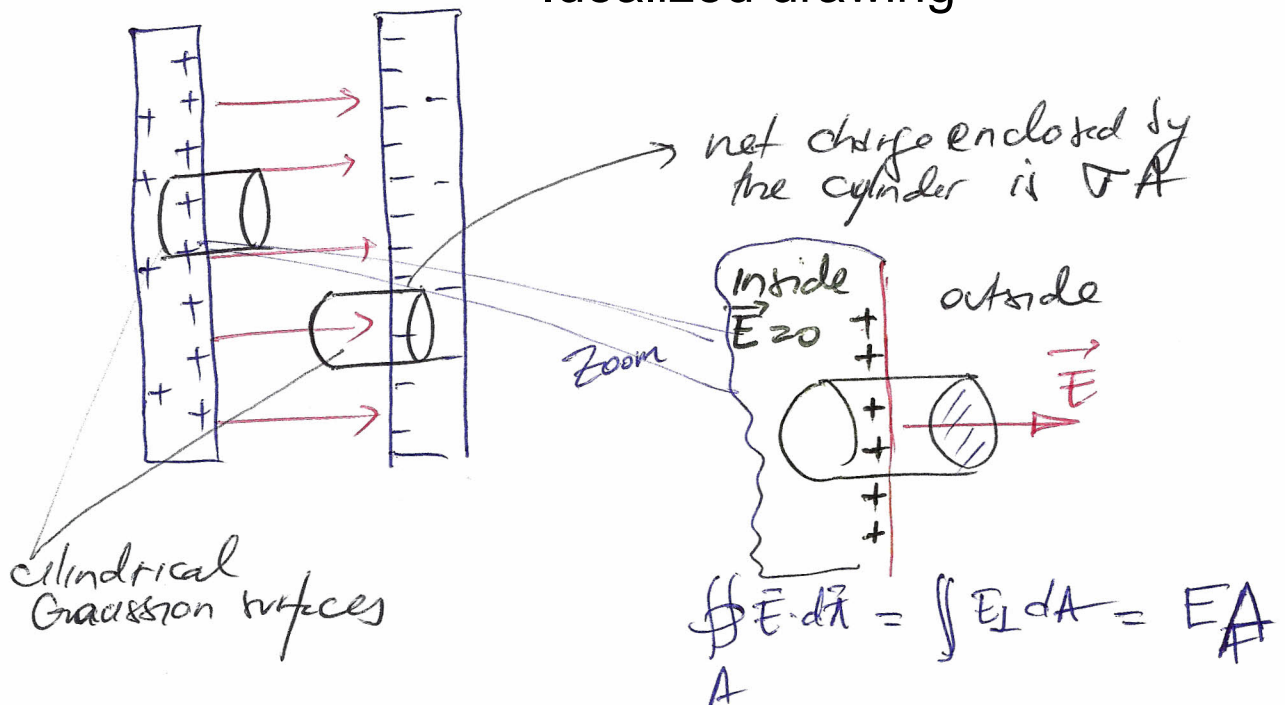 Idealized drawing
net charge enclosed by
the cylinder is σA
inside
E⃗=0
outside
E⃗
Zoom
cilindrical
Gaussion surfaces
∯ E⃗·dA⃗ = ∬ E⊥ dA = EA
A